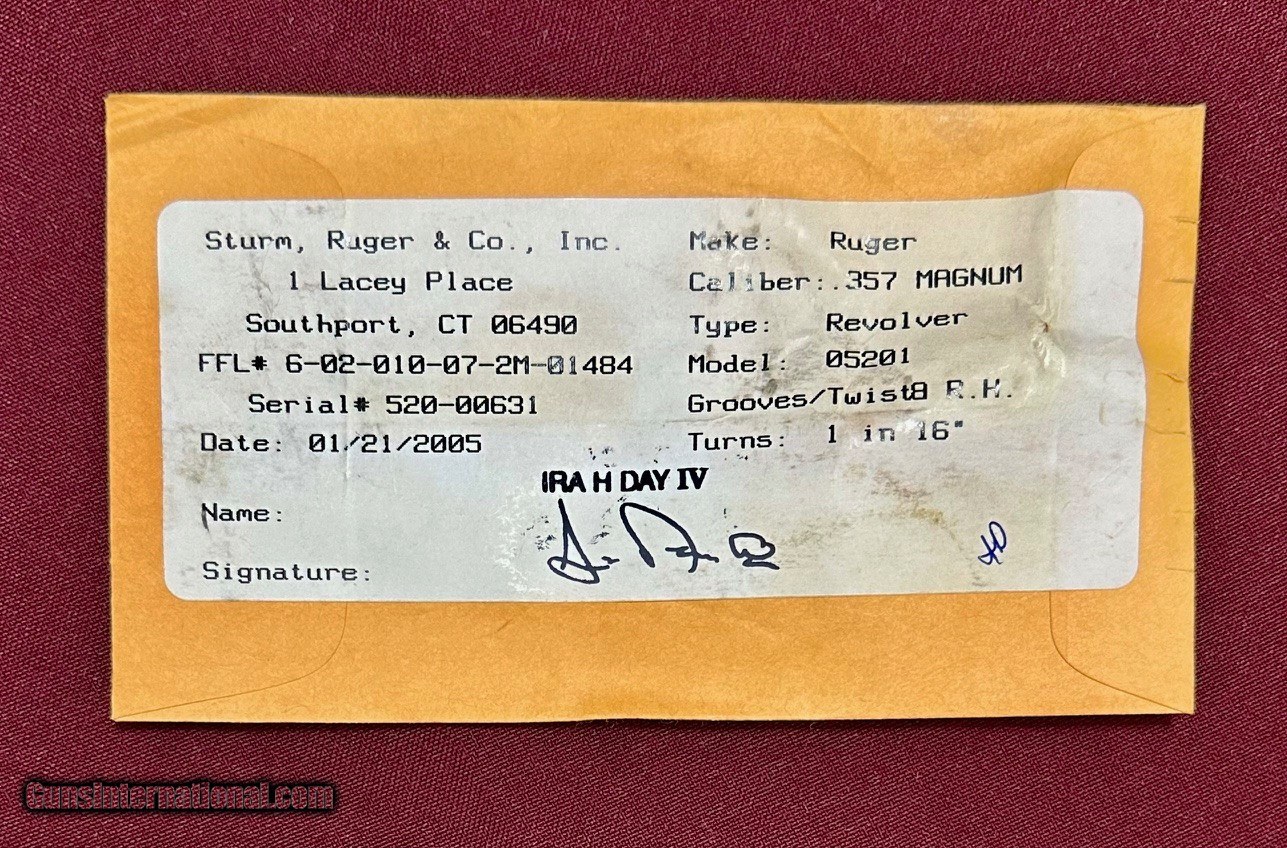 Sturm, Ruger & Co., Inc.
1 Lacey Place
Southport, CT 06490
FFL# 6-02-010-07-2M-01484
Serial# 520-00631
Date: 01/21/2005
Make: Ruger
Caliber:.357 MAGNUM
Type: Revolver
Model: 05201
Grooves/Twist8 R.H.
Turns: 1 in 16"
IRA H DAY IV
Name:
Signature:
GunsInternational.com